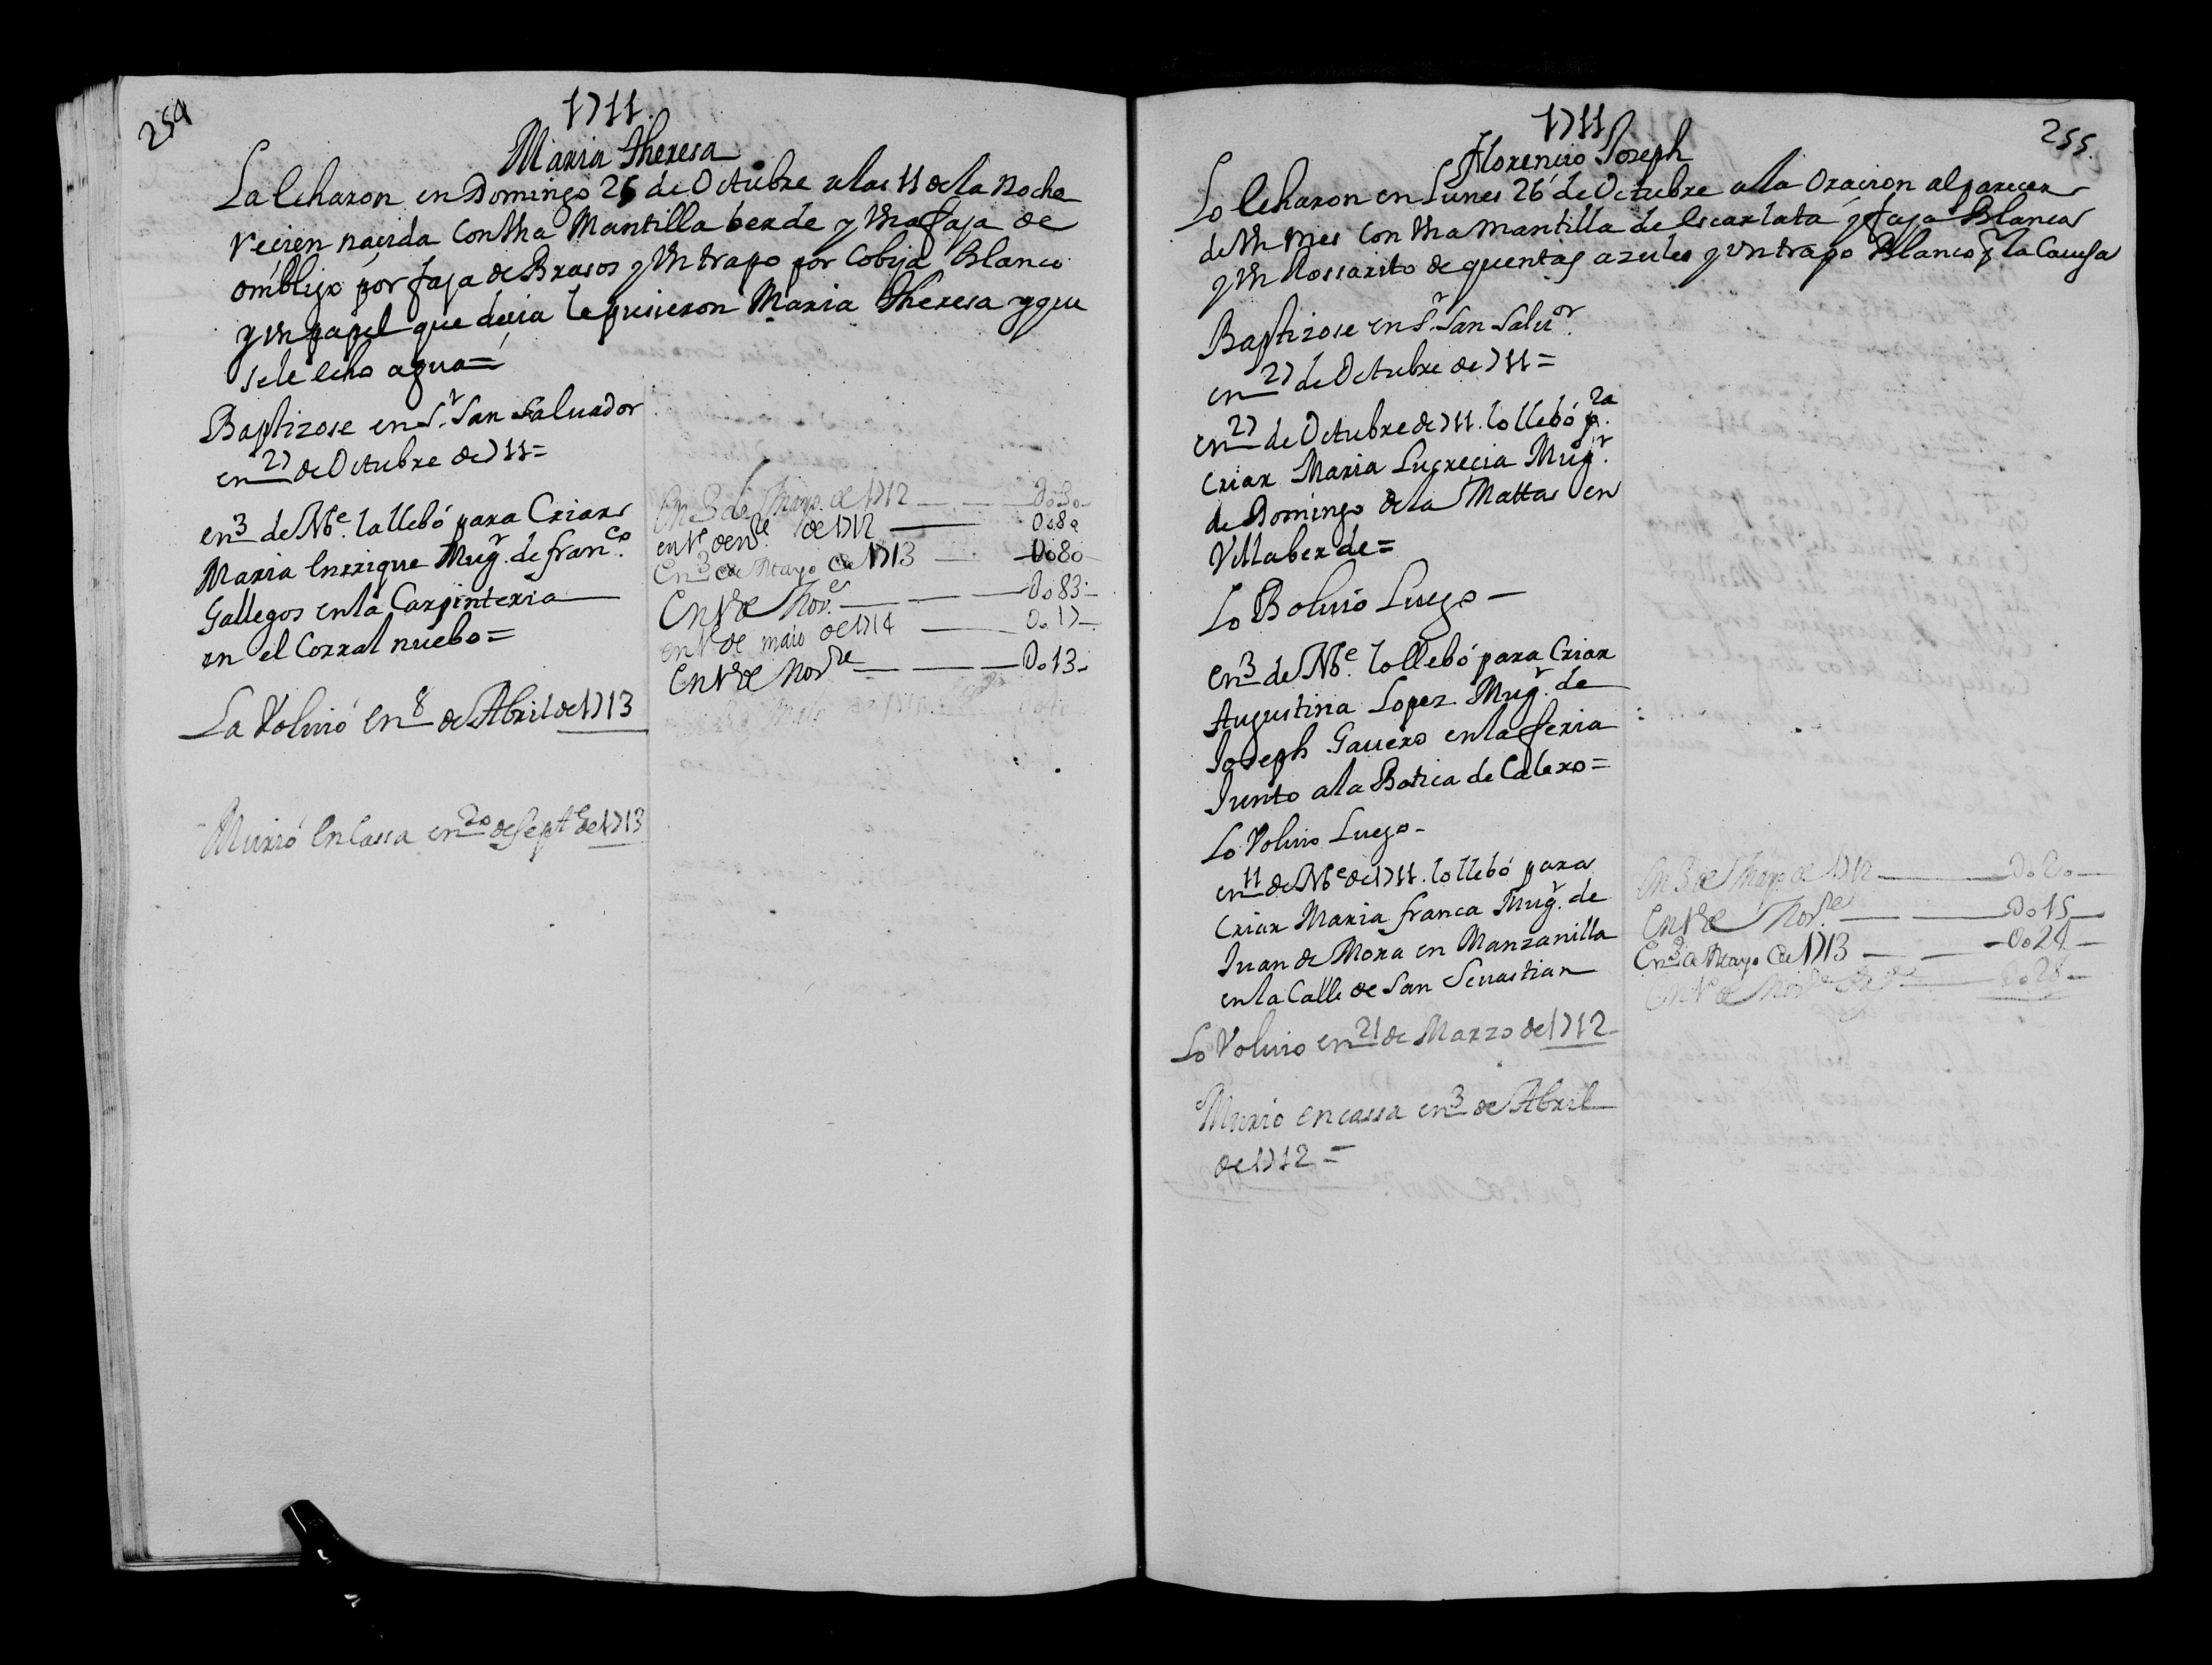 254
1711.
Maria Theresa
La Echaron en Domingo 25 de Octubre a las 11 de la noche
recien nacida con Vna Mantilla berde y Vna faja de
ombligo por faja de Brasos y Vn trapo por Cobija Blanco
y un papel que decia le pusieron Maria Theresa y que
se le echo agua=
Baptizose en Sr. San Saluador
en 27 de Octubre de 711=
en 3 de Nbe. la llebó para Criar
Maria Enrrique Mugr. de franco.
Gallegos en la Carpinteria
en el Corral nuebo=
La Voluió en 8 de Abril de 1713
Murió en Cassa en 20 de Septe. de 1713
En 3 de Mayo. de 1712 — — Do30-
en 1º de nre. de 1712 — Do80
En 3 de Mayo de 1713 — Do80-
En 1º de Nove. — — Do83-
en 1º de maio de 1714 — Do17-
En 1º de Novre — — Do13-
1711
255.
Florencio Joseph
Lo Echaron en Lunes 26 de Octubre a la Oracion al parecer
de Vn mes con Vna mantilla de Escarlata y faja Blanca
y Vn Rossarito de quentas azules y Vn trapo Blanco pr. la Caueza
Baptizose en Sr. San Salur.
en 27 de Octubre de 711=
en 27 de Octubre de 711. lo llebó pa.
criar Maria Lucrecia Mugr.
de Domingo de la Mattas en
Villaberde=
Lo Boluio Luego—
en 3 de Nbe. lo llebó para Criar
Augustina Lopez Mugr. de
Joseph Gauero en la feria
Junto a la Botica de Calexo=
Lo Voluio Luego-
en 11 de Nbe de 1711. lo llebó para
criar Maria franca Mugr. de
Juan de Mora en Manzanilla
en la Calle de San Seuastian
Lo Voluio en 21 de Marzo de 1712-
Murio en cassa en 3 de Abril
de 1712=
En 3 de Mayo de 1712 — Do20—
En 1º de Novre. — Do15—
En 3 de Mayo de 1713 — — Do24—
En 1º de Novre — Do28—